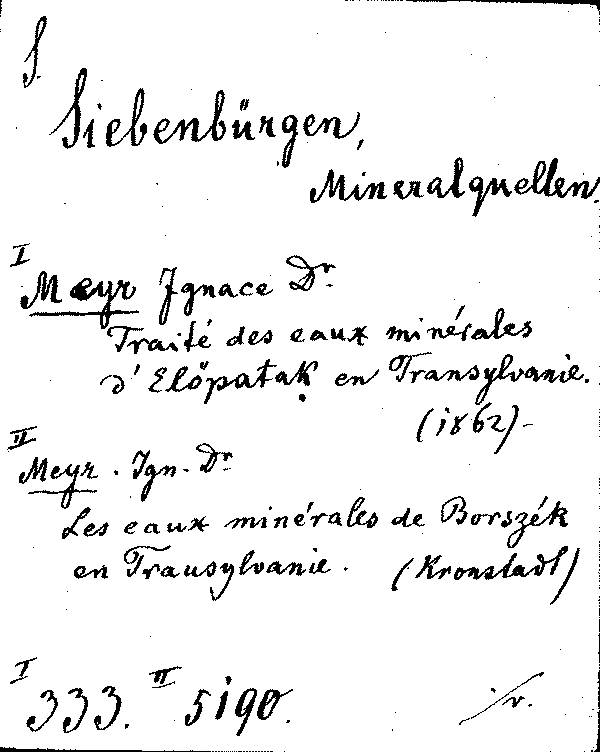 S.
Siebenbürgen,
Mineralquellen.
I
Meyr Ignace Dr.
Traité des eaux minérales
d'Előpatak en Transylvanie.
(1862)-
II
Meyr. Ign. Dr
Les eaux minérales de Borszék
en Transylvanie. (Kronstadt)
I 333. II 5190.